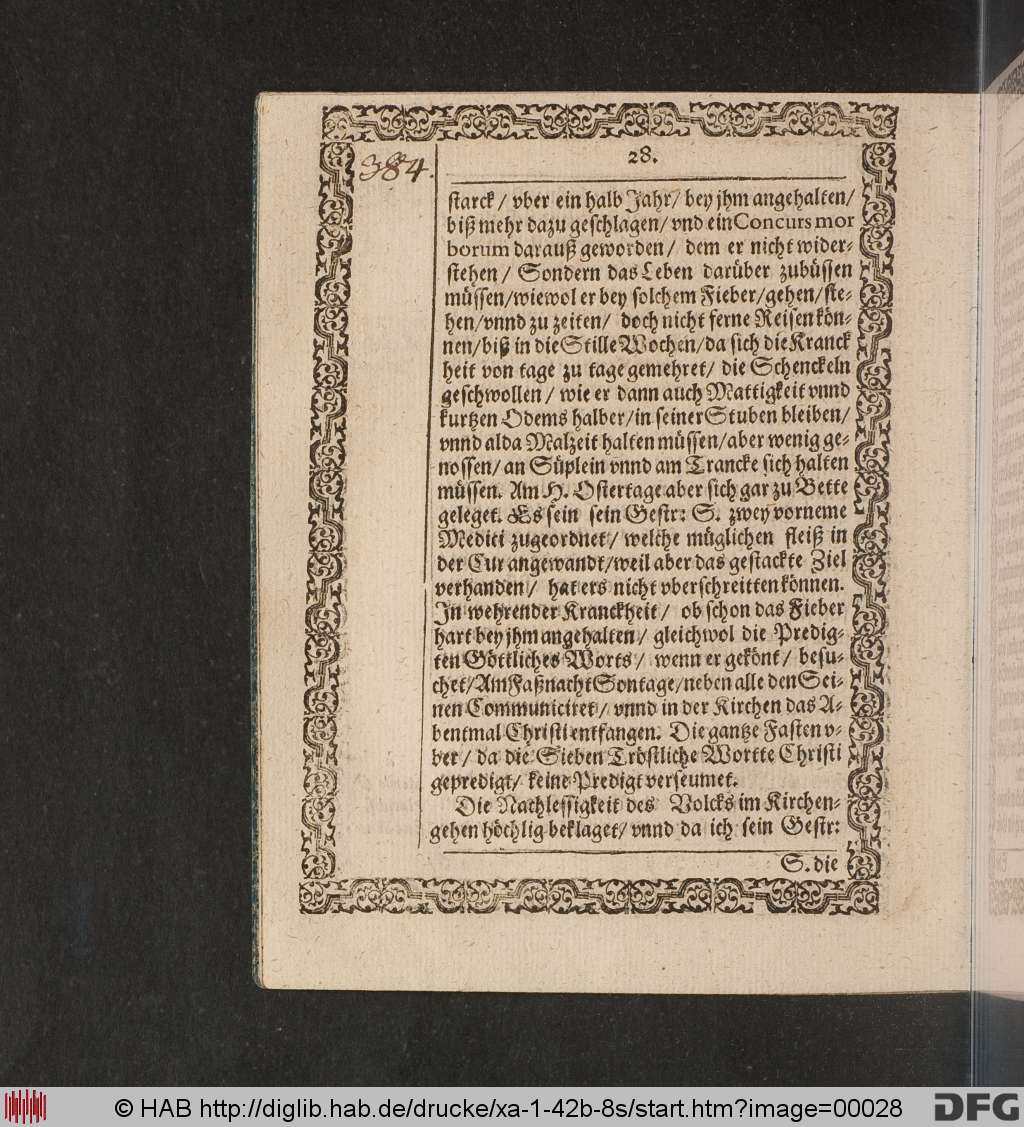 384.
28.
starck / vber ein halb Jahr / bey jhm angehalten /
biß mehr dazu geschlagen / vnd ein Concurs mor
borum darauß geworden / dem er nicht wider-
stehen / Sondern das Leben darüber zubüssen
müssen / wiewol er bey solchem Fieber / gehen / ste-
hen / vnnd zu zeiten / doch nicht ferne Reisen kön-
nen / biß in die Stille Wochen / da sich die Kranck
heit von tage zu tage gemehret / die Schenckeln
geschwollen / wie er dann auch Mattigkeit vnnd
kurtzen Odems halber / in seiner Stuben bleiben /
vnnd alda Malzeit halten müssen / aber wenig ge-
nossen / an Süplein vnnd am Trancke sich halten
müssen. Am H. Ostertage aber sich gar zu Bette
geleget. Es sein sein Gestr: S. zwey vorneme
Medici zugeordnet / welche müglichen fleiß in
der Cur angewandt / weil aber das gestackte Ziel
verhanden / hat ers nicht vberschreitten können.
In wehrender Kranckheit / ob schon das Fieber
hart bey jhm angehalten / gleichwol die Predig-
ten Göttliches Worts / wenn er gekönt / besu-
chet / Am Faßnacht Sontage / neben alle den Sei-
nen Communiciret / vnnd in der Kirchen das A-
bentmal Christi entfangen. Die gantze Fasten v-
ber / da die Sieben Tröstliche Wortte Christi
gepredigt / keine Predigt verseumet.
Die Nachlessigkeit des Volcks im Kirchen-
gehen höchlig beklaget / vnnd da ich sein Gestr:
S. die
© HAB http://diglib.hab.de/drucke/xa-1-42b-8s/start.htm?image=00028
DFG